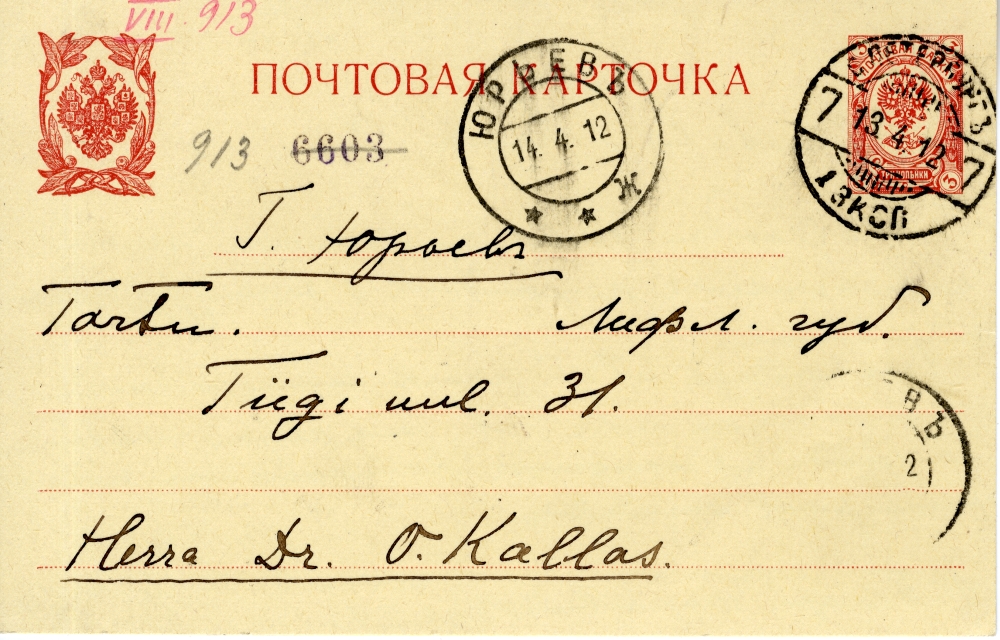 VIII 913
ПОЧТОВАЯ КАРТОЧКА
913 6603
ЮРЬЕВЪ
14. 4. 12
Ж
С.ПЕТЕРБУРГЪ
7 13.4.12 7
1 ЭКСП
3 3
Г. Юрьевъ
Tartu. Лифл. губ.
Tiigi uul. 31.
ВЪ
2
Herra Dr. O. Kallas.